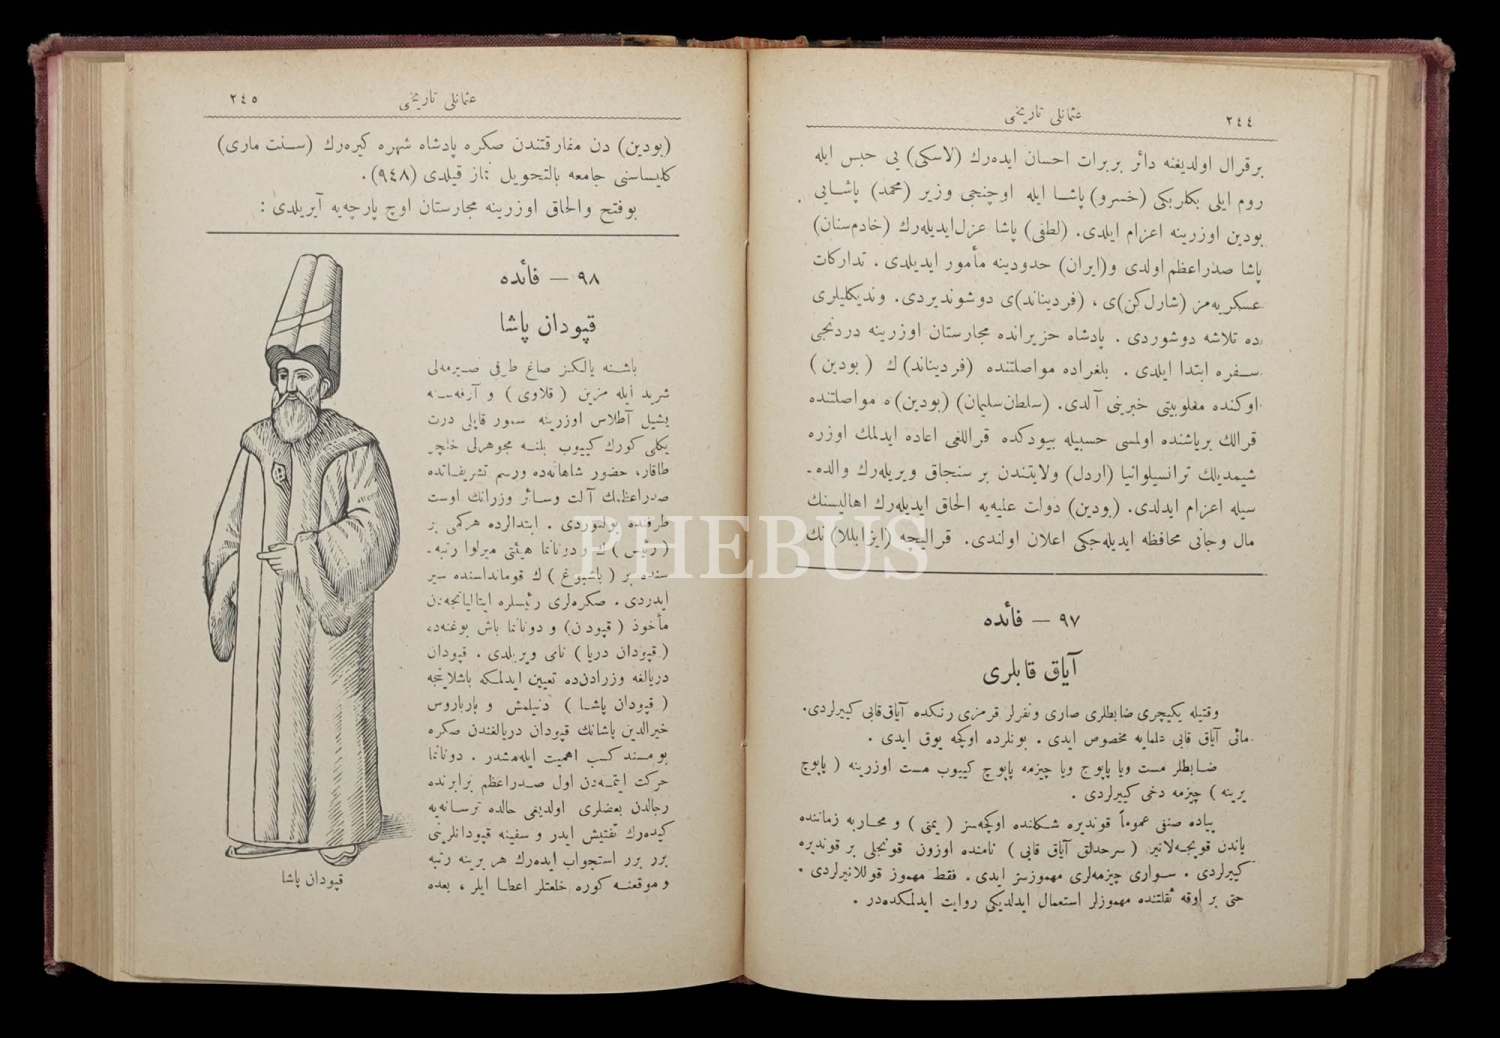 ٢٤٤
عثمانلی تاریخی
برقرال اولدیغنه دائر بربرات احسان ایده‌رك (لاسكی) یی حبس ایله
روم ایلی بكلربكی (خسرو) پاشا ایله اوچنجی وزیر (محمد) پاشایی
بودین اوزرینه اعزام ایلدی. (لطفی) پاشا عزل‌ایدیله‌رك (خادم‌سنان)
پاشا صدراعظم اولدی و(ایران) حدودینه مأمور ایدیلدی. تداركات
عسكریه‌مز (شارل‌كن)ی ، (فردیناند)ی دوشوندیردی. وندیكلیلری
ده تلاشه دوشوردی. پادشاه حزیرانده مجارستان اوزرینه دردنجی
سفره ابتدا ایلدی. بلغراده مواصلتنده (فردیناند) ك (بودین)
اوكنده مغلوبیتی خبرینی آلدی. (سلطان‌سلیمان) (بودین)ه مواصلتنده
قرالك بریاشنده اولمسی حسبیله بیودكده قراللغی اعاده ایدلمك اوزره
شیمدیلك ترانسیلوانیا (اردل) ولایتندن بر سنجاق ویریله‌رك والده-
سیله اعزام ایدلدی. (بودین) دولت علیه‌یه الحاق ایدیله‌رك اهالیسنك
مال وجانی محافظه ایدیله‌جكی اعلان اولندی. قرالیچه (ایزابللا) نك
٩٧ — فائده
آیاق قابلری
وقتیله یكیچری ضابطلری صاری ونفرلر قرمزی رنكده آیاق‌قابی كییرلردی.
مائی آیاق قابی علمایه مخصوص ایدی. بونلرده اوكچه یوق ایدی.
ضابطلر مست ویا پابوج ویا چیزمه پابوج كییوب مست اوزرینه (پابوج
یرینه) چیزمه دخی كییرلردی.
پیاده صنفی عموماً قوندیره شكلنده اوكچه‌سز (یمنی) و محاربه زماننده
یاندن قوپچه‌لانیر (سرحدلق آیاق قابی) نامنده اوزون قونجلی بر قوندیره
كییرلردی. سواری چیزمه‌لری مهموزسز ایدی. فقط مهموز قوللانیرلردی.
حتی بر اوقه ثقلتنده مهموزلر استعمال ایدلدیكی روایت ایدلمكده‌در.
٢٤٥
عثمانلی تاریخی
(بودین) دن مفارقتندن صكره پادشاه شهره كیره‌رك (سنت ماری)
كلیساسنی جامعه بالتحویل نماز قیلدی (٩٤٨).
بوفتح والحاق اوزرینه مجارستان اوچ پارچه‌یه آیریلدی:
٩٨ — فائده
قپودان پاشا
باشنه یالكز صاغ طرفی صیرمه‌لی
شرید ایله مزین (قلاوی) و آرقه‌سنه
یشیل آطلاس اوزرینه سمور قابلی درت
یكلی كورك كییوب بلنه مجوهرلی خنچر
طاقار، حضور شاهانه‌ده ورسم تشریفاتده
صدراعظمك آلت وسائر وزرانك اوست
طرفنده بولنوردی. ابتدالرده هركمی بر
(رئیس) ك و دوناتما هیئتی میرلوا رتبه-
سنده بر (باشبوغ) ك قومانداسنده سیر
ایدردی. صكره‌لری رئیسلره ایتالیانجه‌دن
مأخوذ (قپودن) و دوناتما باش بوغنه‌ده
(قپودان دریا) نامی ویریلدی. قپودان
دریالغه وزرادن‌ده تعیین ایدلمكه باشلاینجه
(قپودان پاشا) دنیلمش و بارباروس
خیرالدین پاشانك قپودان دریالغندن صكره
بو مسند كسب اهمیت ایله‌مشدر. دوناتما
حركت ایتمه‌دن اول صدراعظم برابرنده
رجالدن بعضلری اولدیغی حالده ترسانه‌یه
كیده‌رك تفتیش ایدر و سفینه قپودانلرینی
برر برر استجواب ایده‌رك هر برینه رتبه
و موقعنه كوره خلعتلر اعطا ایلر، بعده
قپودان پاشا
PHEBUS